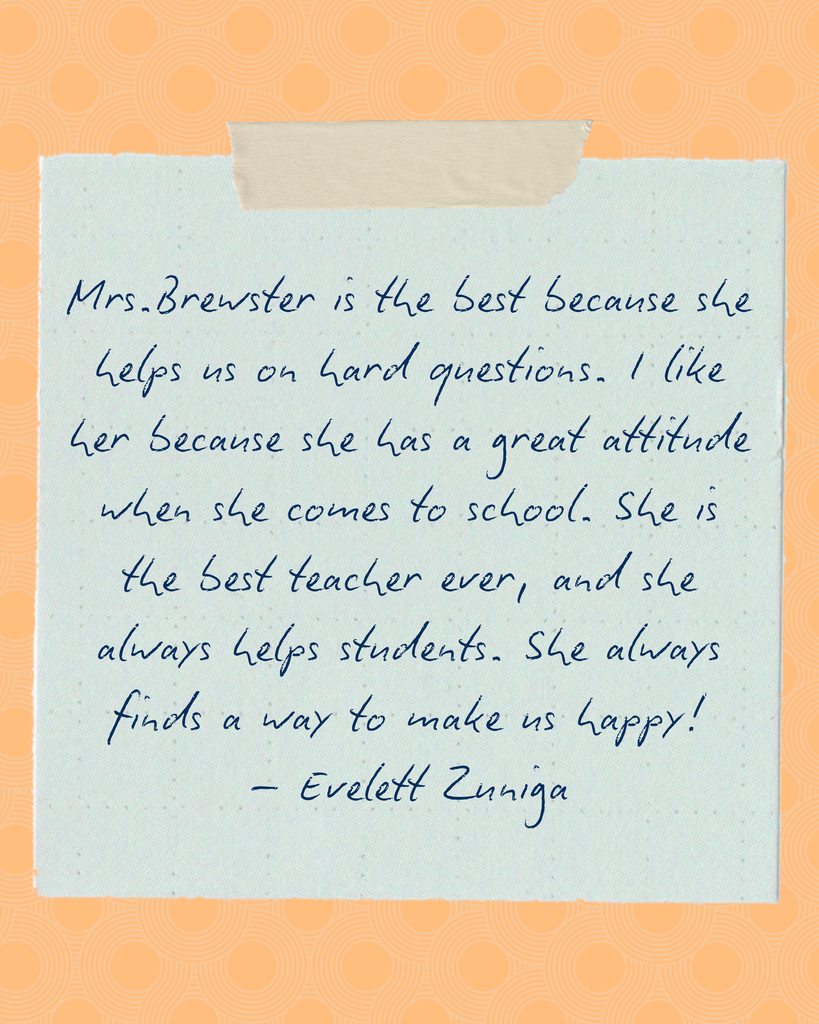 Mrs.Brewster is the best because she
helps us on hard questions. I like
her because she has a great attitude
when she comes to school. She is
the best teacher ever, and she
always helps students. She always
finds a way to make us happy!
- Evelett Zuniga